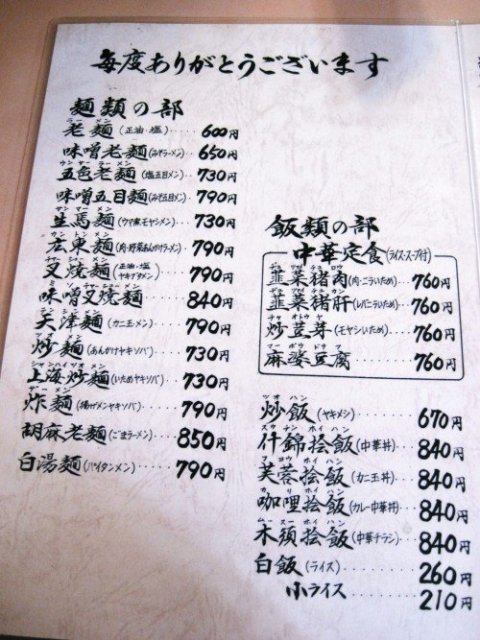 毎度ありがとうございます
麺類の部
老麺(正油・塩)‥‥600円
味噌老麺(みそラーメン)650円
五色老麺(塩五目メン)730円
味噌五目麺(みそ五目メン)790円
生馬麺(ウマ煮モヤシメン)730円
広東麺(肉・野菜あんかけラーメン)790円
叉焼麺(正油・塩 ヤキブタメン)790円
味噌叉焼麺‥‥840円
天津麺(カニ玉メン)‥‥790円
炒麺(あんかけヤキソバ)‥‥730円
上海炒麺(いためヤキソバ)‥‥730円
炸麺(揚げメンヤキソバ)‥‥790円
胡麻老麺(ごまラーメン)‥‥850円
白湯麺(パイタンメン)‥‥790円
飯類の部
中華定食(ライス・スープ付)
韮菜猪肉(肉・ニラいため)‥760円
韮菜猪肝(レバニラいため)‥760円
炒荳芽(モヤシいため)‥‥760円
麻婆豆腐‥‥760円
炒飯(ヤキメシ)‥‥670円
什錦烩飯(中華丼)‥‥840円
芙蓉烩飯(カニ玉丼)‥‥840円
咖哩烩飯(カレー中華丼)‥840円
木須烩飯(中華チラシ)‥840円
白飯(ライス)‥‥260円
小ライス‥‥210円